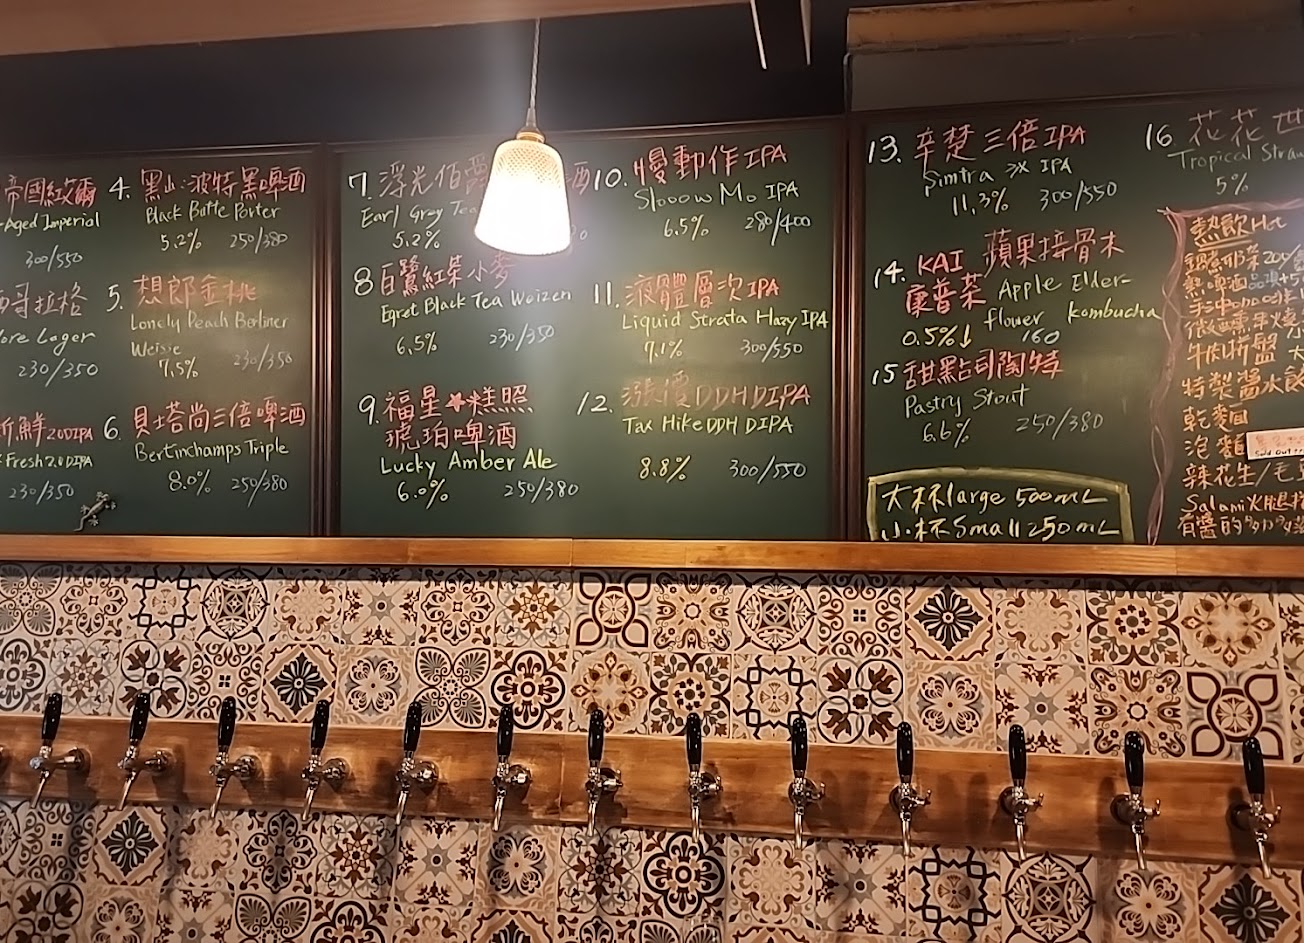 帝國紅
-Aged Imperial
300/550
哥拉格
ore Lager
230/350
鮮2.0DIPA
Fresh2.0DIPA
230/350
4. 黑山:波特黑啤酒
Black Butte Porter
5.2% 250/380
5. 想郎金桃
Lonely Peach Berliner
Weisse
7.5% 230/350
6. 貝塔尚三倍啤酒
Bertinchamps Triple
8.0% 250/380
7. 浮光伯 酒
Earl Grey Tea
5.2%
8 白鷺紅茶小麥
Egret Black Tea Weizen
6.5% 230/350
9. 福星★糕照
琥珀啤酒
Lucky Amber Ale
6.0% 250/380
10. 慢動作IPA
Slooow Mo IPA
6.5% 280/400
11. 液體層次IPA
Liquid Strata Hazy IPA
7.1% 300/550
12. 漲價DDHDIPA
Tax Hike DDH DIPA
8.8% 300/550
13. 辛楚三倍IPA
Simtra IPA
11.3% 300/550
14. KAI 蘋果接骨木
康普茶 Apple Elder-
flower kombucha
0.5%↓ 160
15 甜點司陶特
Pastry Stout
6.6% 250/380
大杯large 500mL
小杯Small 250mL
16 花花世
Tropical Straw
5%
熱飲Hot
熱啤酒
牛肉拼盤
特製醬水餃
乾麵
泡麵
Sold out
辣花生/毛豆
Salami火腿
有醬的